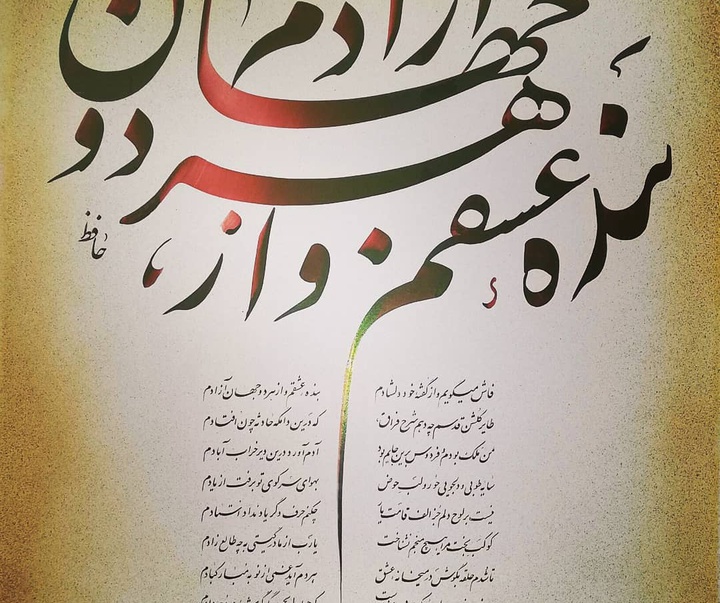 بنده عشقم و از هر دو جهان آزادم
حافظ
فاش میگویم و از گفته خود دلشادم بنده عشقم و از هر دو جهان آزادم
طایر گلشن قدسم چه دهم شرح فراق که درین دامگه حادثه چون افتادم
من ملک بودم و فردوس برین جایم بود آدم آورد درین دیر خراب آبادم
سایه طوبی و دلجویی حور و لب حوض بهوای سر کوی تو برفت از یادم
نیست بر لوح دلم جز الف قامت یار چکنم حرف دگر یاد نداد استادم
کوکب بخت مرا هیچ منجم نشناخت یارب از مادر گیتی به چه طالع زادم
تا شدم حلقه بگوش در میخانه عشق هر دم آید غمی از نو به مبارکبادم